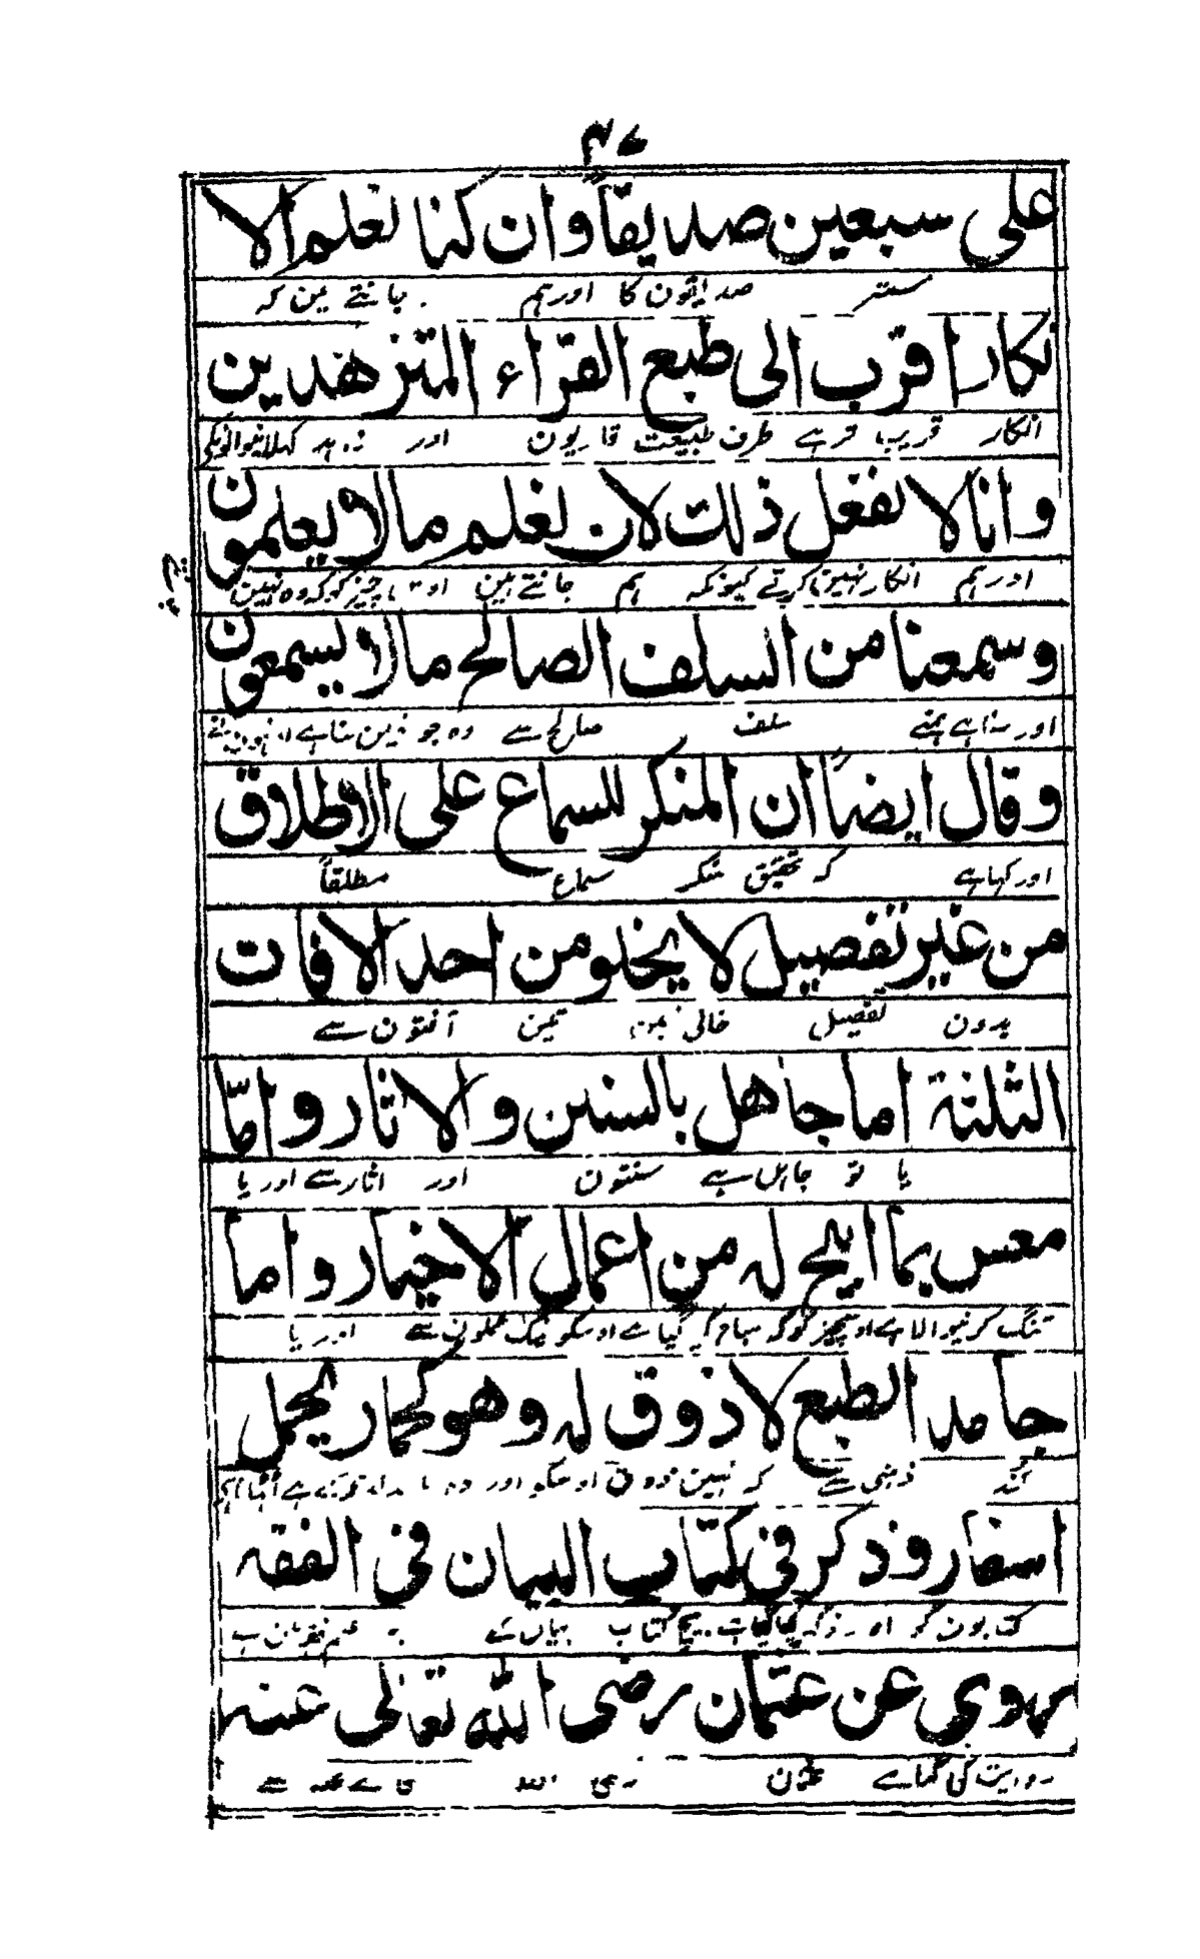 ٣٧
على سبعين صديقاً وان كنا نعلم الا
ستر صديقون کا اور ہم جانتے ہین کہ
نكار اقرب الى طبع القرّاء المتزهدين
انکار قریب تر ہے طرف طبیعت قاریون اور زاہد کہلانیوالونکی
وانا لا نفعل ذلك لان نعلم ما لا يعلمون
اور ہم انکار نہین کرتے کیونکہ ہم جانتے ہین اوس چیز کو کہ وہ نہین
وسمعنا من السلف الصالح ما لا يسمعون
اور سنا ہے ہمنے سلف صالح سے وہ جو نہین سنا ہے
وقال ايضاً ان المنكر للسماع على الاطلاق
اور کہا ہے کہ تحقیق منکر سماع مطلقاً
من غير تفصيل لا يخلو من احد الافات
بدون تفصیل خالی نہین تین آفتون سے
الثلثة اما جاهل بالسنن والاثار وامّا
یا تو جاہل ہے سنتون اور اثار سے اور یا
معس بما ايلح له من اعمال الاخيار واما
تنگ کرنیوالا ہے اوسچیز کو کہ مباح کیا گیا ہے اوسکو نیک عملون سے اور یا
جامد الطبع لا ذوق له وهو كحمار يحمل
کند ذہنی سے کہ نہین ذوق اوسکو اور وہ
اسفار وذكر في كتاب البيان في الفقه
کتابون کو اور ذکر کیا گیا ہے بیچ کتاب بیان کے
يروي عن عثمان رضى الله تعالى عنه
روایت کی گیا ہے عثمان رضی اللہ تعالے عنہ سے